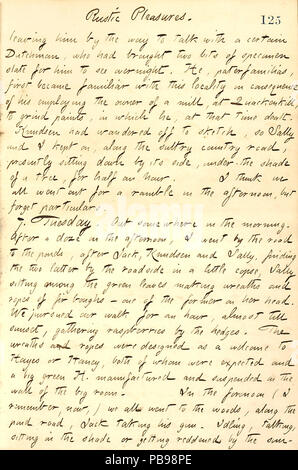 Rustic Pleasures.
125
leaving him by the way to talk with a certain
Dutchman, who had brought two bits of specimen
slate for him to see overnight. He, paterfamilias,
first became familiar with this locality in consequence
of his employing the owner of a mill, at Quackenkill,
to grind paints, in which he, at that time dealt.
Knudsen had wandered off to sketch, so Sally
and I kept on, along the sultry country road,
presently sitting down by its side, under the shade
of a tree, for half an hour. I think we
all went out for a ramble in the afternoon, but
forget particulars.
7. Tuesday. Out somewhere in the morning.
After a doze in the afternoon, I went by the road
to the ponds, after Jack, Knudsen and Sally, finding
the two latter by the roadside in a little copse, Sally
sitting among the green leaves making wreaths and
ropes of fir boughs — one of the former on her head.
We pursued our walk for an hour, almost till
sunset, gathering raspberries by the hedges. The
wreaths and ropes were designed as a welcome to
Hayes or Haney, both of whom were expected and
a big green H. manufactured and suspended on the
wall of the big room. In the forenoon (I
remember, now,) we all went to the woods, along the
pond road, Jack taking his gun. Idling, talking,
sitting in the shade or getting reddened by the sun-
alamy
alamy stock photo
PB98PE